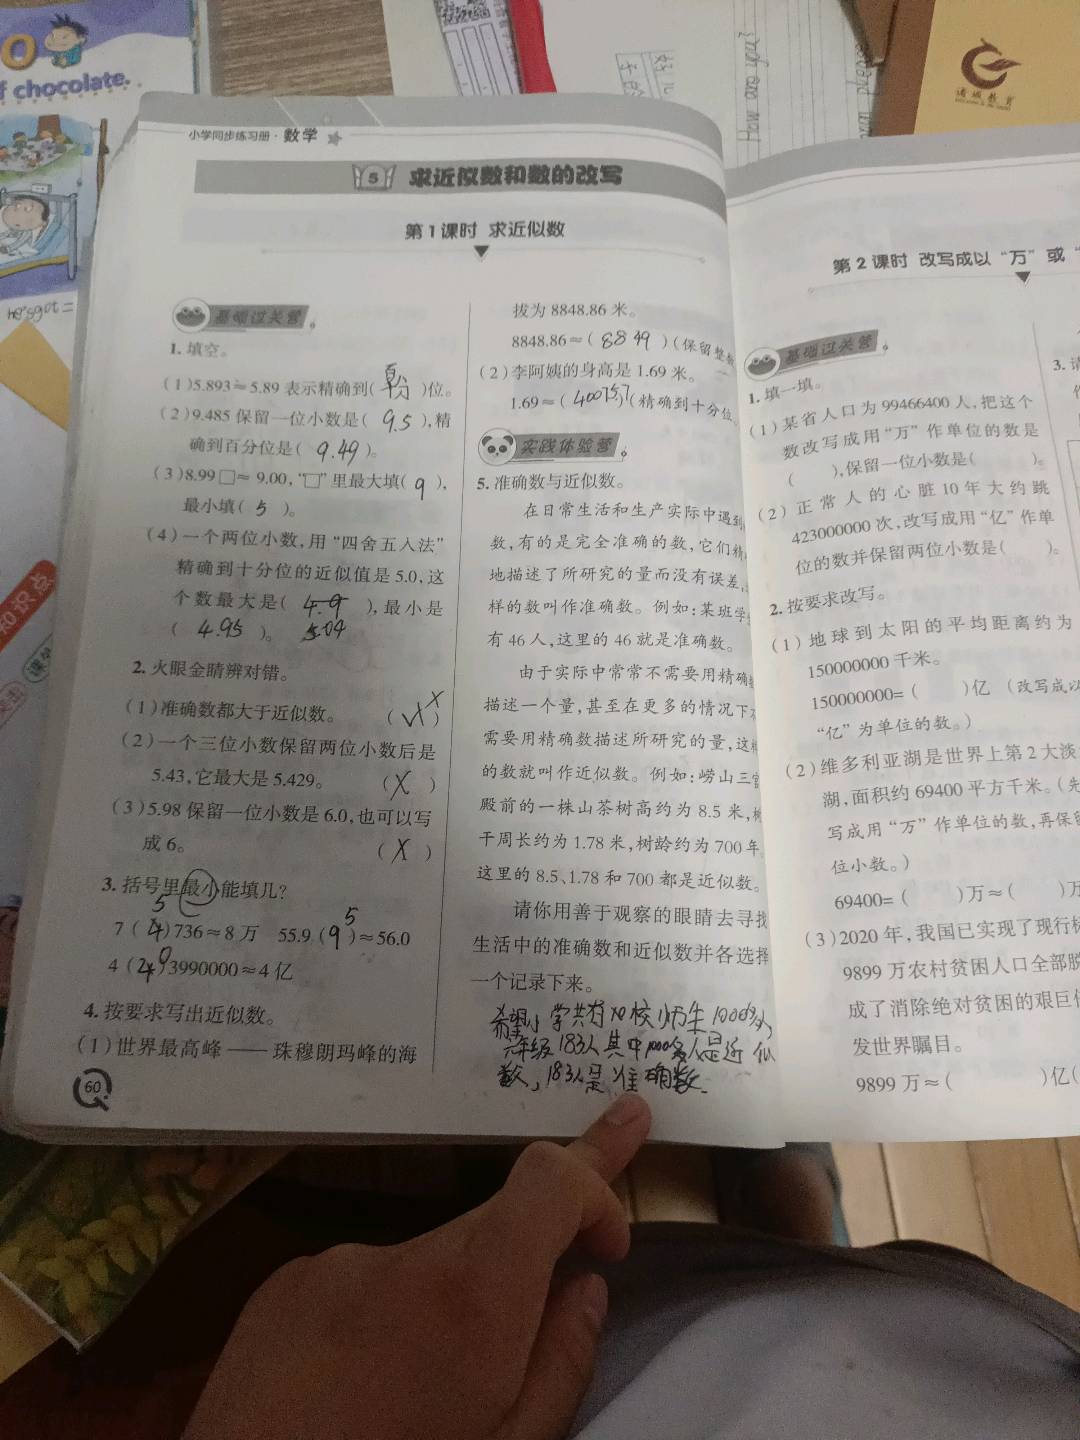 O
f chocolate.
he's got =
知识点
How are you
诸城教育
小学同步练习册·数学
5 求近似数和数的改写
第1课时 求近似数
基础过关营
1. 填空。
(1)5.893≈5.89 表示精确到( 百分 )位。
(2)9.485 保留一位小数是( 9.5 ),精
确到百分位是( 9.49 )。
(3)8.99□≈9.00,“□”里最大填( 9 ),
最小填( 5 )。
(4)一个两位小数,用“四舍五入法”
精确到十分位的近似值是5.0,这
个数最大是( 4.9 ),最小是
( 4.95 )。 5.04
2. 火眼金睛辨对错。
(1)准确数都大于近似数。 (√) X
(2)一个三位小数保留两位小数后是
5.43,它最大是5.429。 (X)
(3)5.98 保留一位小数是6.0,也可以写
成6。 (X)
3. 括号里最小能填几?
5 5
7(4)736≈8万 55.9(9)≈56.0
0
4(24)3990000≈4亿
4. 按要求写出近似数。
(1)世界最高峰——珠穆朗玛峰的海
60
拔为8848.86米。
8848.86≈( 8849 )(保留整
(2)李阿姨的身高是1.69米。
1.69≈( )(精确到十分位
实践体验营
5. 准确数与近似数。
在日常生活和生产实际中遇到
数,有的是完全准确的数,它们精
地描述了所研究的量而没有误差,
样的数叫作准确数。例如:某班学
有46人,这里的46就是准确数。
由于实际中常常不需要用精确
描述一个量,甚至在更多的情况下
需要用精确数描述所研究的量,这
的数就叫作近似数。例如:崂山三官
殿前的一株山茶树高约为8.5米,
干周长约为1.78米,树龄约为700年
这里的8.5、1.78和700都是近似数。
请你用善于观察的眼睛去寻找
生活中的准确数和近似数并各选择
一个记录下来。
希望小学共有 校师生1000多人,
六年级183人其中1000多人是近似
数,183人是准确数.
第2课时 改写成以“万”或“
基础过关营
1. 填一填。
(1)某省人口为99466400人,把这个
数改写成用“万”作单位的数是
( ),保留一位小数是( )。
(2)正常人的心脏10年大约跳
423000000次,改写成用“亿”作单
位的数并保留两位小数是( )。
2. 按要求改写。
(1)地球到太阳的平均距离约为
150000000千米。
150000000=( )亿 (改写成以
“亿”为单位的数。)
(2)维多利亚湖是世界上第2大淡
湖,面积约69400平方千米。(先
写成用“万”作单位的数,再保留
位小数。)
69400=( )万≈( )万
(3)2020年,我国已实现了现行标
9899万农村贫困人口全部脱
成了消除绝对贫困的艰巨任
发世界瞩目。
9899万≈( )亿(
3. 请